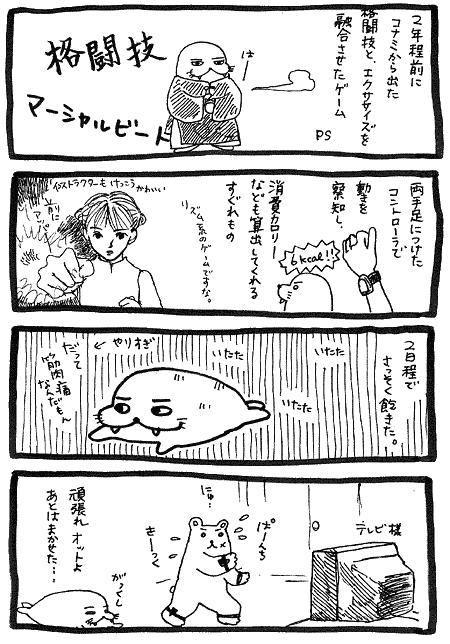 2年程前に
コナミから出た
格闘技と、エクササイズを
融合させたゲーム
PS
は
格闘技
マーシャルビート
両手足につけた
コントローラで
動きを
察知し、
6kcal!!
消費カロリー
なども算出してくれる
すぐれもの
リズム系のゲームですな。
インストラクターもけっこうかわいい
2日程で
さっそく飽きた。
いたた
いたた
いたた
← やりすぎ
だって
筋肉痛
なんだもん
テレビ様
ぱーんち
にゅ…
きーっく
頑張れ オットよ
あとはまかせた…
がくっし